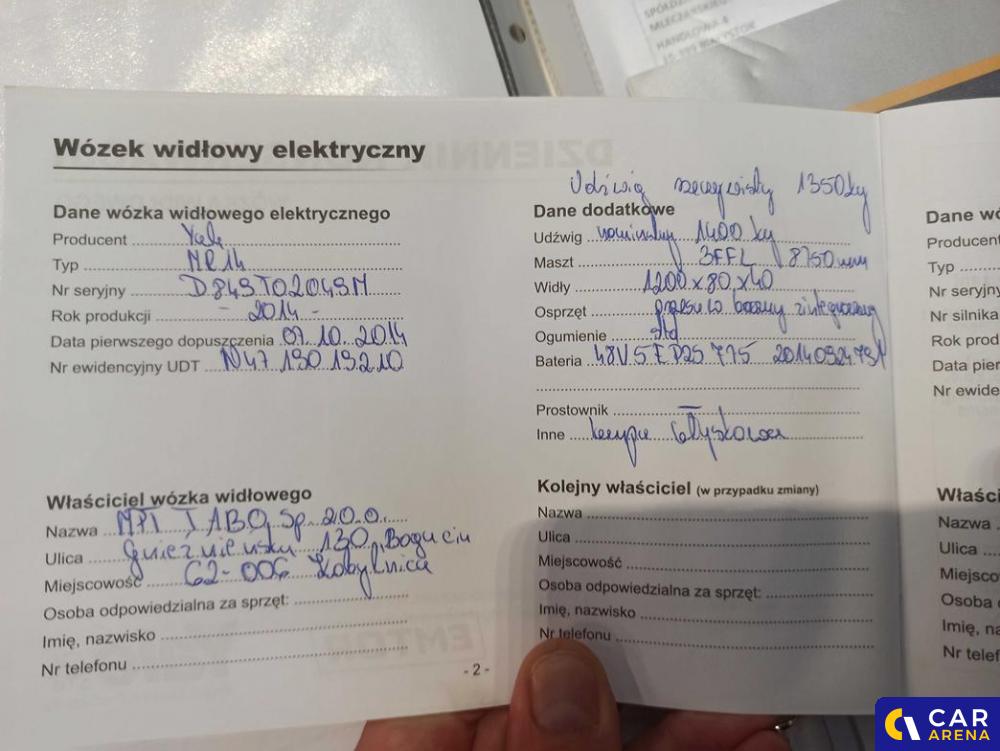 SPÓŁDZ
MLECZARSKIE
HANDLOWA 4
Wózek widłowy elektryczny
Dane wózka widłowego elektrycznego
Producent Yale
Typ MR14
Nr seryjny D849T02049M
Rok produkcji - 2014 -
Data pierwszego dopuszczenia 07.10.2014
Nr ewidencyjny UDT N47 190 19210
Właściciel wózka widłowego
Nazwa MPT JABO Sp. z o.o.
Ulica Gnieźnieńska 130, Bogucin
Miejscowość 62-006 Kobylnica
Osoba odpowiedzialna za sprzęt:
Imię, nazwisko
Nr telefonu
- 2 -
Udźwig rzeczywisty 1350kg
Dane dodatkowe
Udźwig nominalny 1400 kg
Maszt 3FFL 8750mm
Widły 1200x80x40
Osprzęt przesuw boczny zintegrowany
Ogumienie std
Bateria 48V 5 E PZS 775
Prostownik —
Inne lampa błyskowa
Kolejny właściciel (w przypadku zmiany)
Nazwa
Ulica
Miejscowość
Osoba odpowiedzialna za sprzęt:
Imię, nazwisko
Nr telefonu
Dane wó
Producent
Typ
Nr seryjny
Nr silnika
Rok prod
Data pier
Nr ewide
Właści
Nazwa
Ulica
Miejsco
Osoba
Imię, na
Nr telef
CAR
ARENA